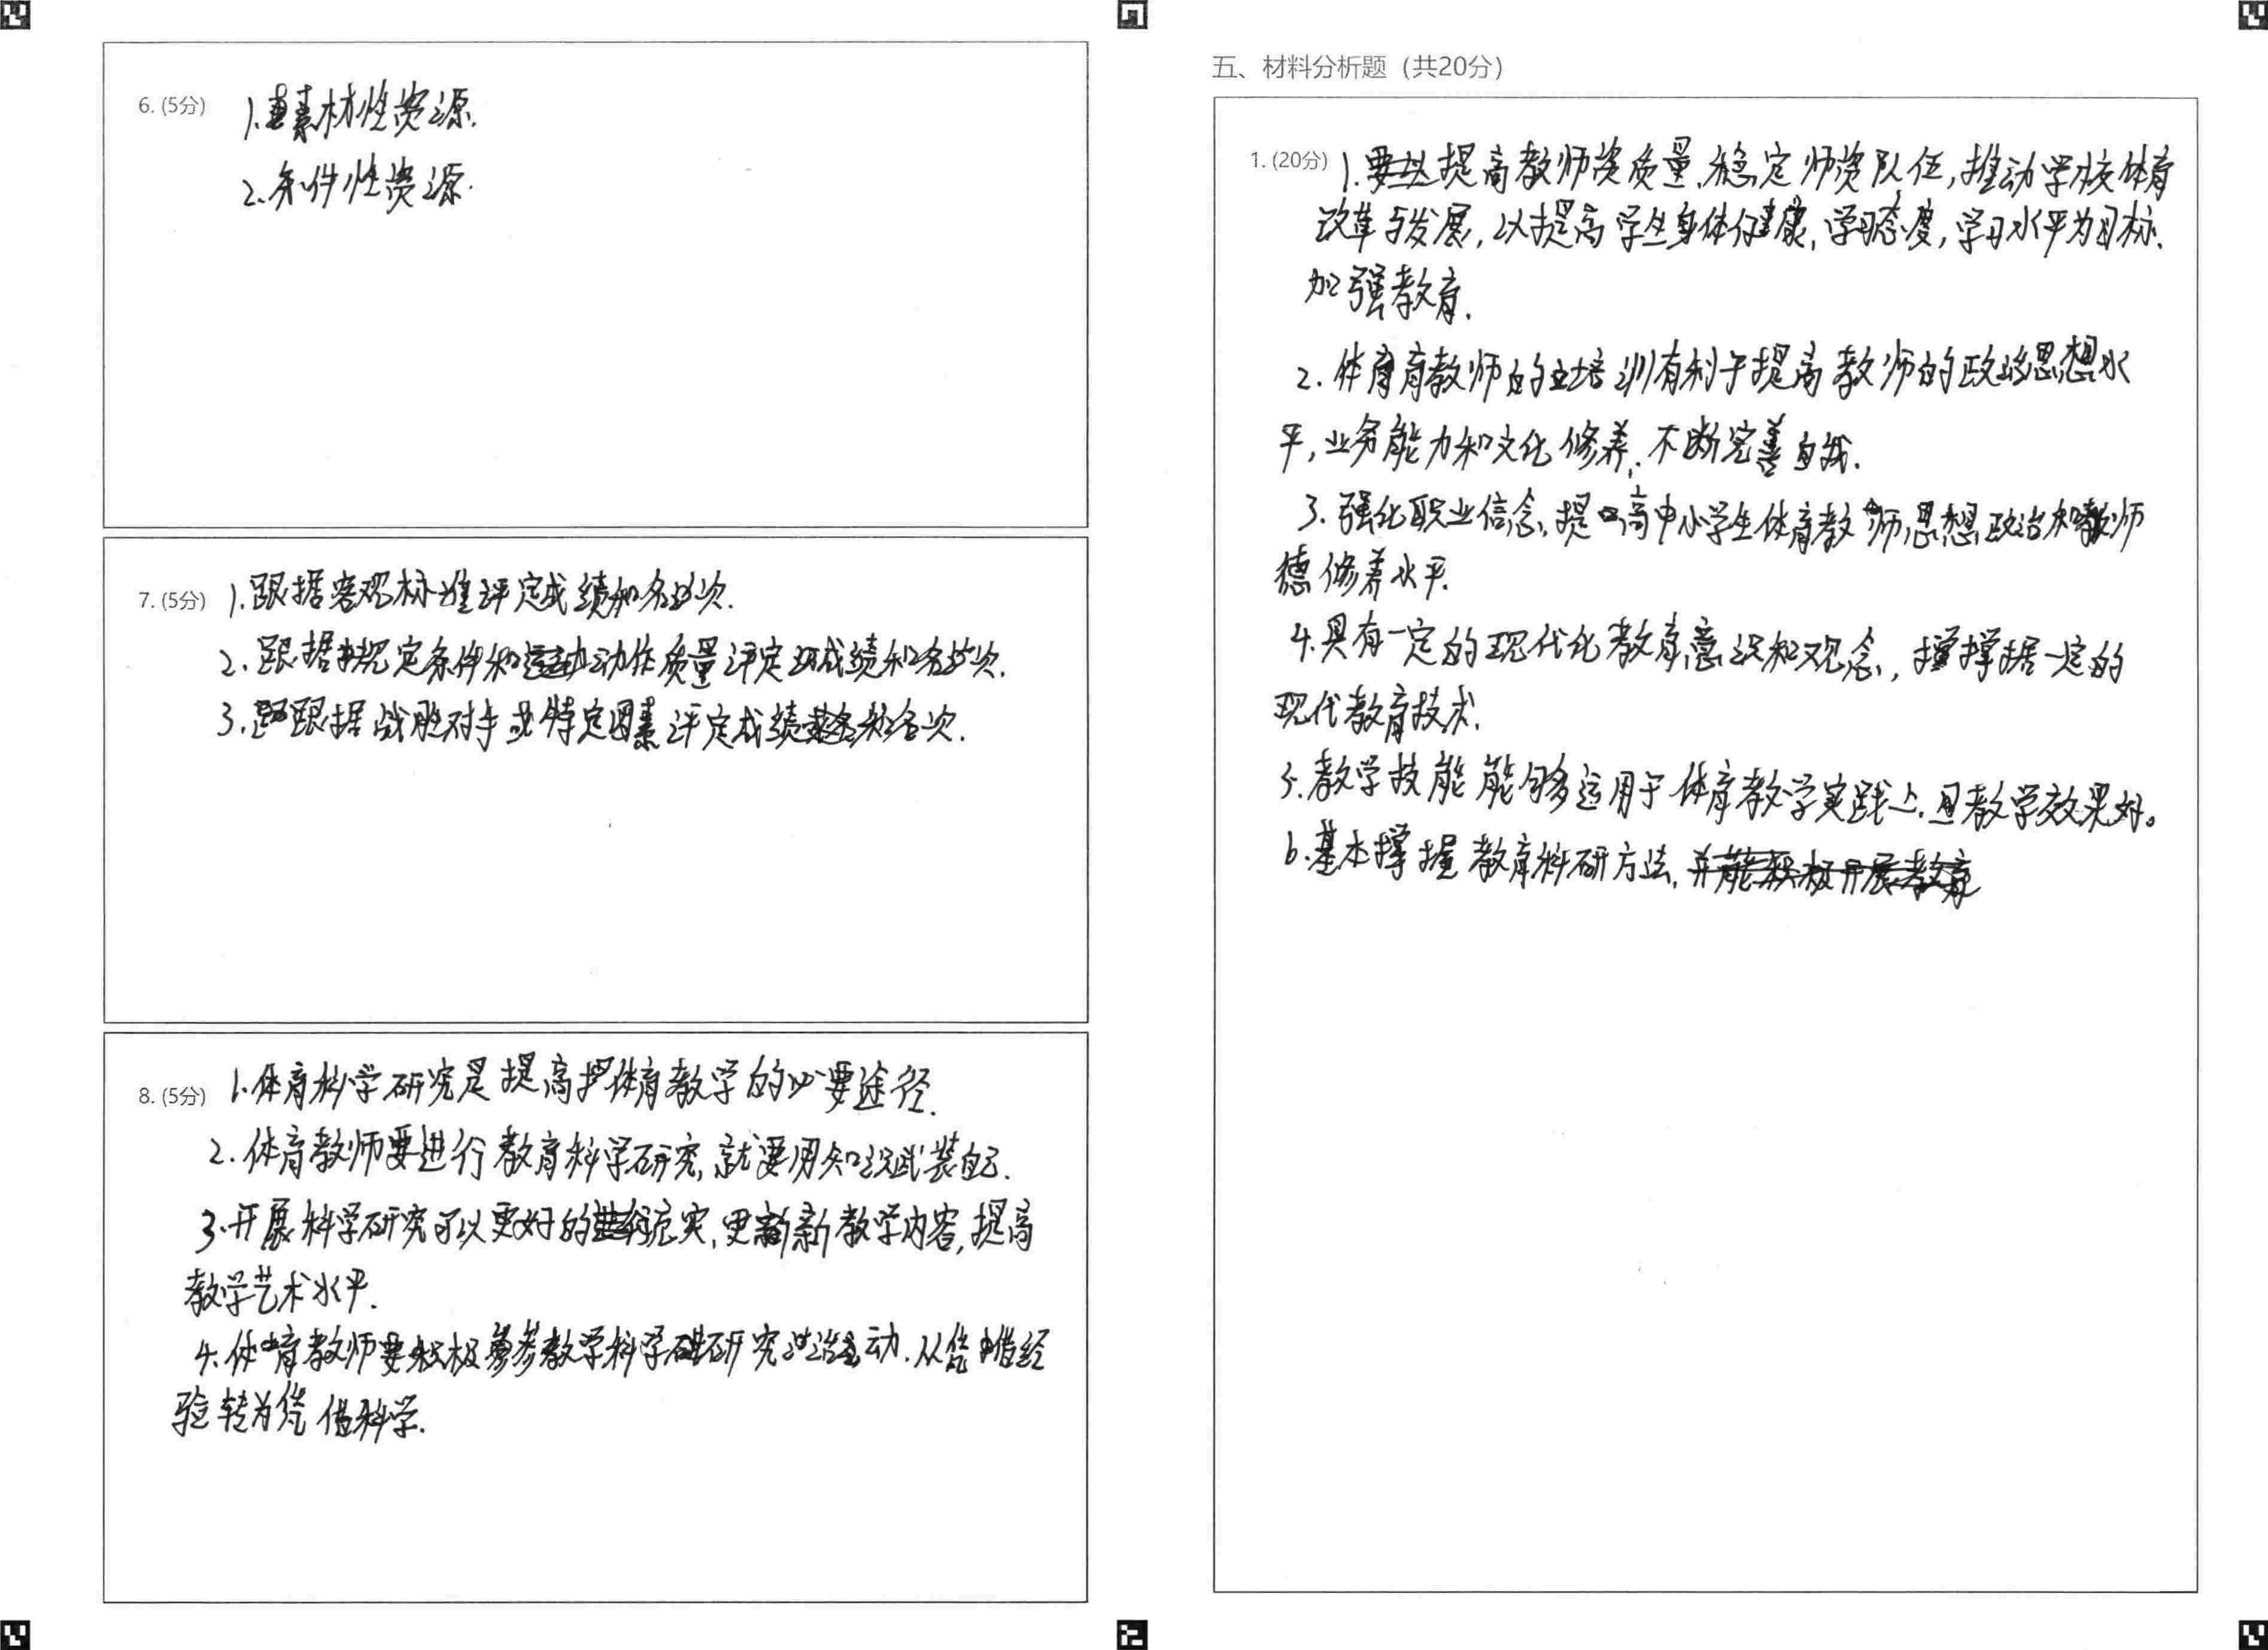 6. (5分) 1.素材性资源.
2.条件性资源.
7. (5分) 1.跟据客观标准评定成绩和名次.
2.跟据规定条件和动作质量评定成绩和名次.
3.跟据战胜对手或特定因素评定成绩和名次.
8. (5分) 1.体育科学研究是提高体育教学的必要途径.
2.体育教师要进行教育科学研究,就要用知识武装自己.
3.开展科学研究可以更好的充实,更新教学内容,提高
教学艺术水平.
4.体育教师要积极参教学科学研究活动.从凭借经
验转为凭借科学.
五、材料分析题（共20分）
1. (20分) 1.提高教师资质量,稳定师资队伍,推动学校体育
改革与发展,以提高学生身体健康,学习态度,学习水平为目标.
加强教育.
2.体育教师的培训有利于提高教师的政治思想水
平,业务能力和文化修养,不断完善自我.
3.强化职业信念,提高中小学生体育教师思想政治和师
德修养水平.
4.具有一定的现代化教育意识和观念,撑据一定的
现代教育技术.
5.教学技能能够运用于体育教学实践上.且教学效果好。
6.基本撑握教育科研方法,